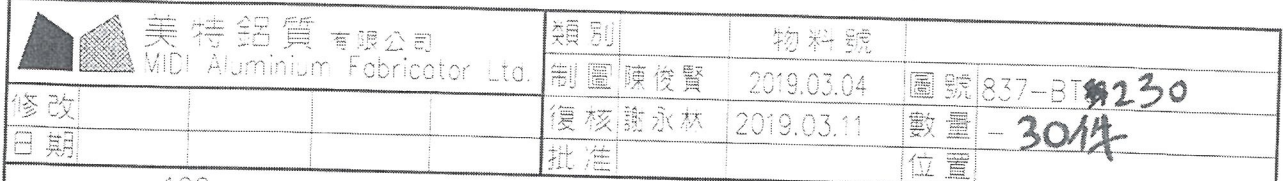 美特鋁質有限公司
MIDI Aluminium Fabricator Ltd.
類別 物料號
制圖 陳俊賢 2019.03.04 圖號 837-BT230
修改 復核 謝永林 2019.03.11 數量 - 30件
日期 批准 位置